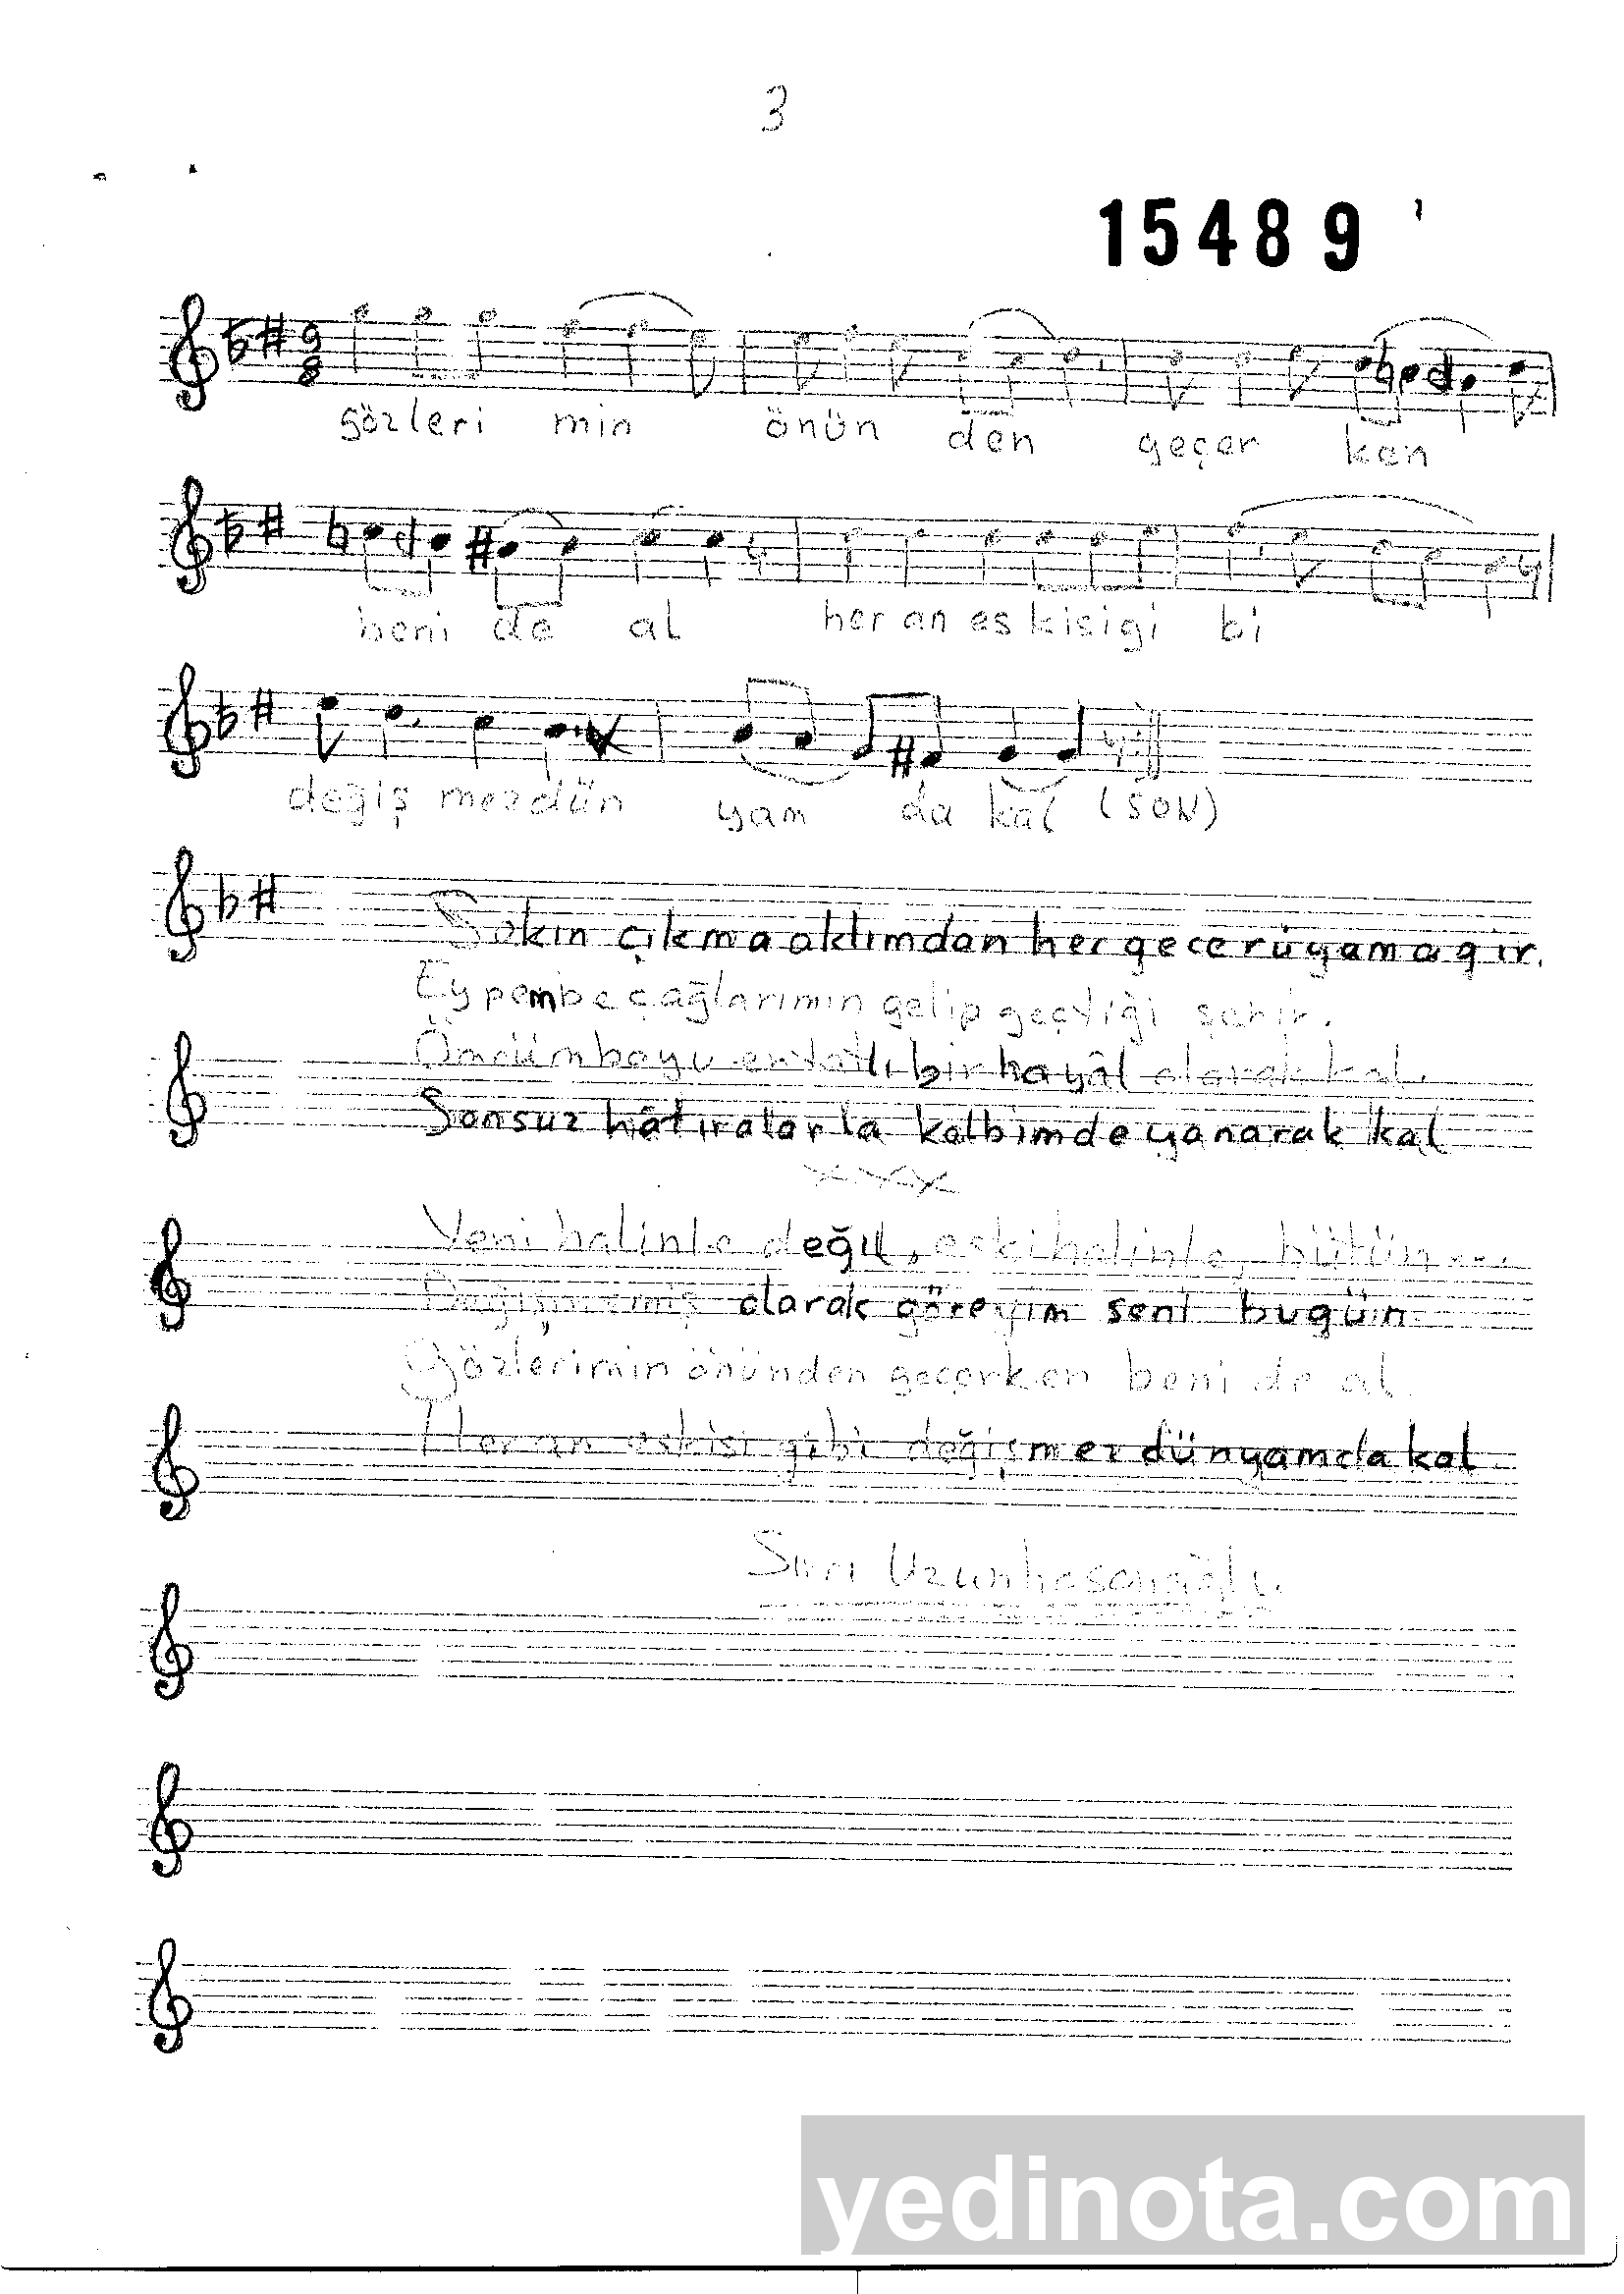 3
15489
9
8
gözleri min önün den geçer ken
beni de al her an es kisigi bi
değiş mezdün yam da kal (SON)
Sakın çıkma aklımdan her gece rüyama gir.
Ey pembe çağlarımın gelip geçtiği şehir.
Ömrümboyu en tatlı bir hayâl olarak kal.
Sonsuz hâtıralarla kalbimde yanarak kal
xxx
Yeni halinle değil, eski halinle, bütün...
Değişmemiş olarak göreyim seni bugün
Gözlerimin önünden geçerken beni de al.
Her an eskisi gibi değişmez dünyamda kal
Sırrı Uzunhasanoğlu
yedinota.com